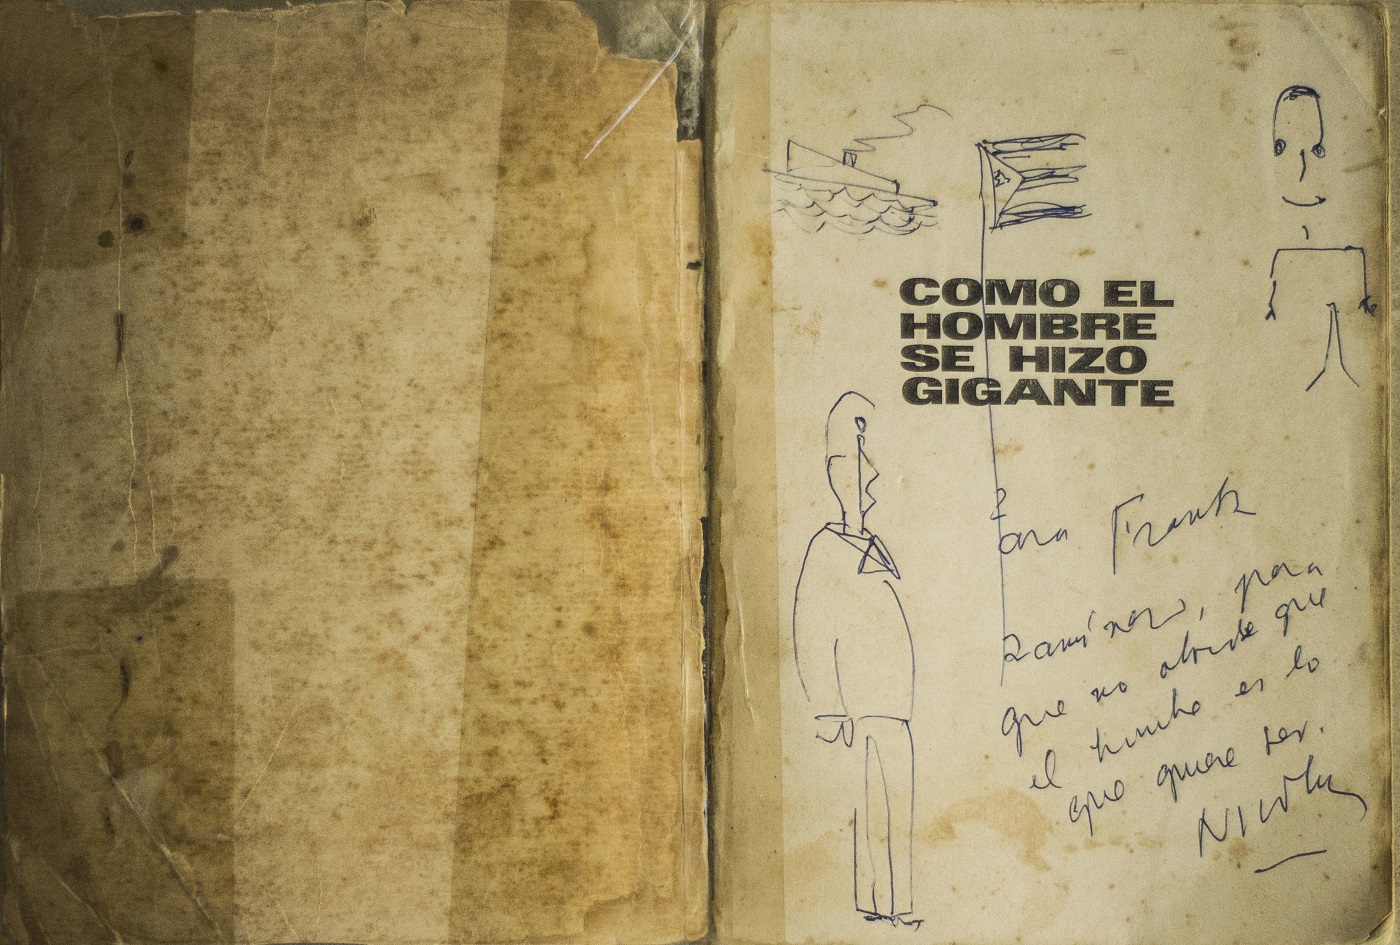 COMO EL
HOMBRE
SE HIZO
GIGANTE
Para Frantz
Ramírez, para
que no olvide que
el hombre es lo
que quiere ser.